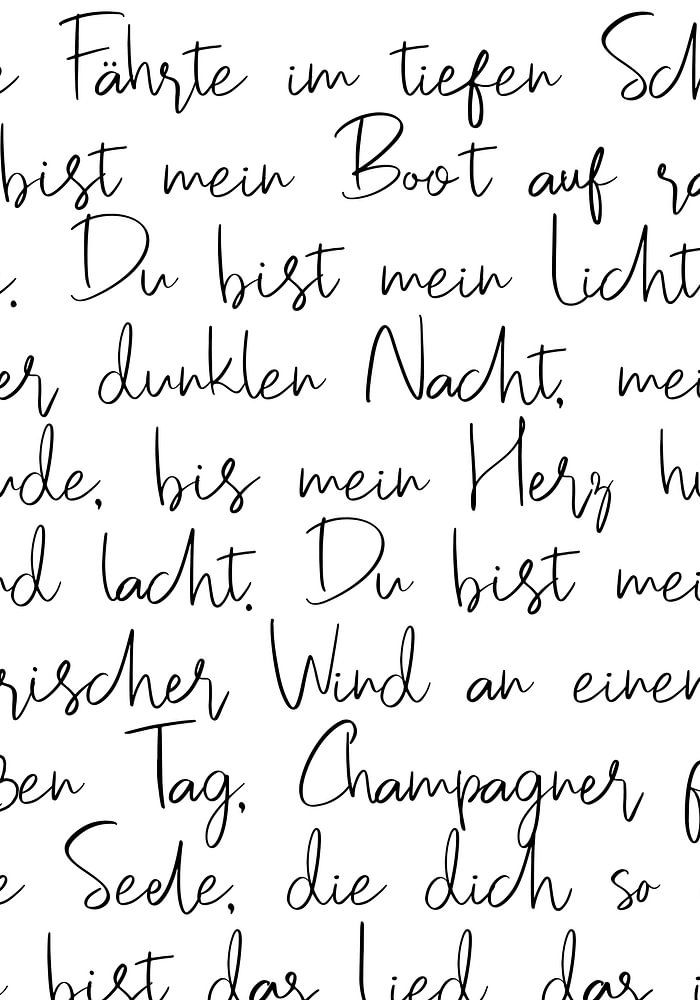 e Fährte im tiefen Sch
bist mein Boot auf ra
. Du bist mein Licht
er dunklen Nacht, mei
ude, bis mein Herz hü
nd lacht. Du bist mei
rischer Wind an einem
ßen Tag, Champagner f
e Seele, die dich so
bist das Lied, das i